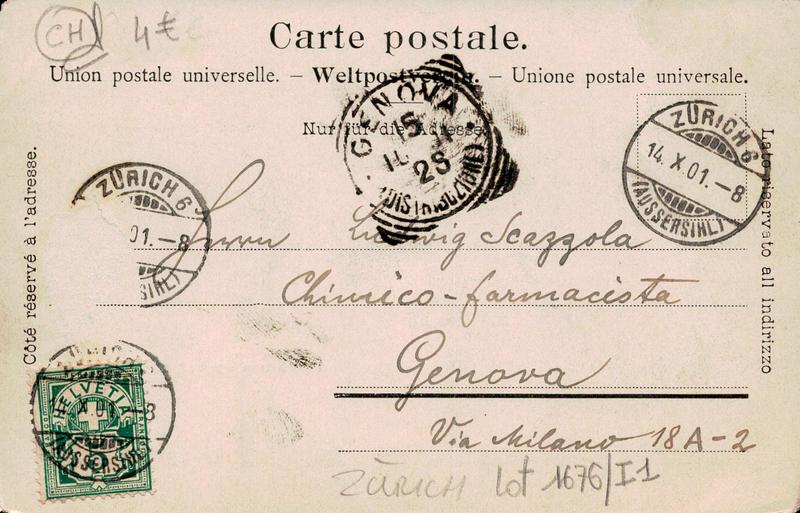 CH 4€
Carte postale.
Union postale universelle. – Weltpostverein. – Unione postale universale.
Nur für die Adresse
GENOVA
15
25
(DISTRIBUZIONE)
ZÜRICH 6
14. X. 01. – 8
(AUSSERSIHL)
ZÜRICH 6
01. – 8
SIHL)
Côté réservé à l'adresse.
Lato riservato all indirizzo
Herrn Ludwig Scazzola
Chimico-farmacista
Genova
Via Milano 18A-2
X 01 8
(AUSSERSIHL)
HELVETIA
ZÜRICH lot 1676/I1